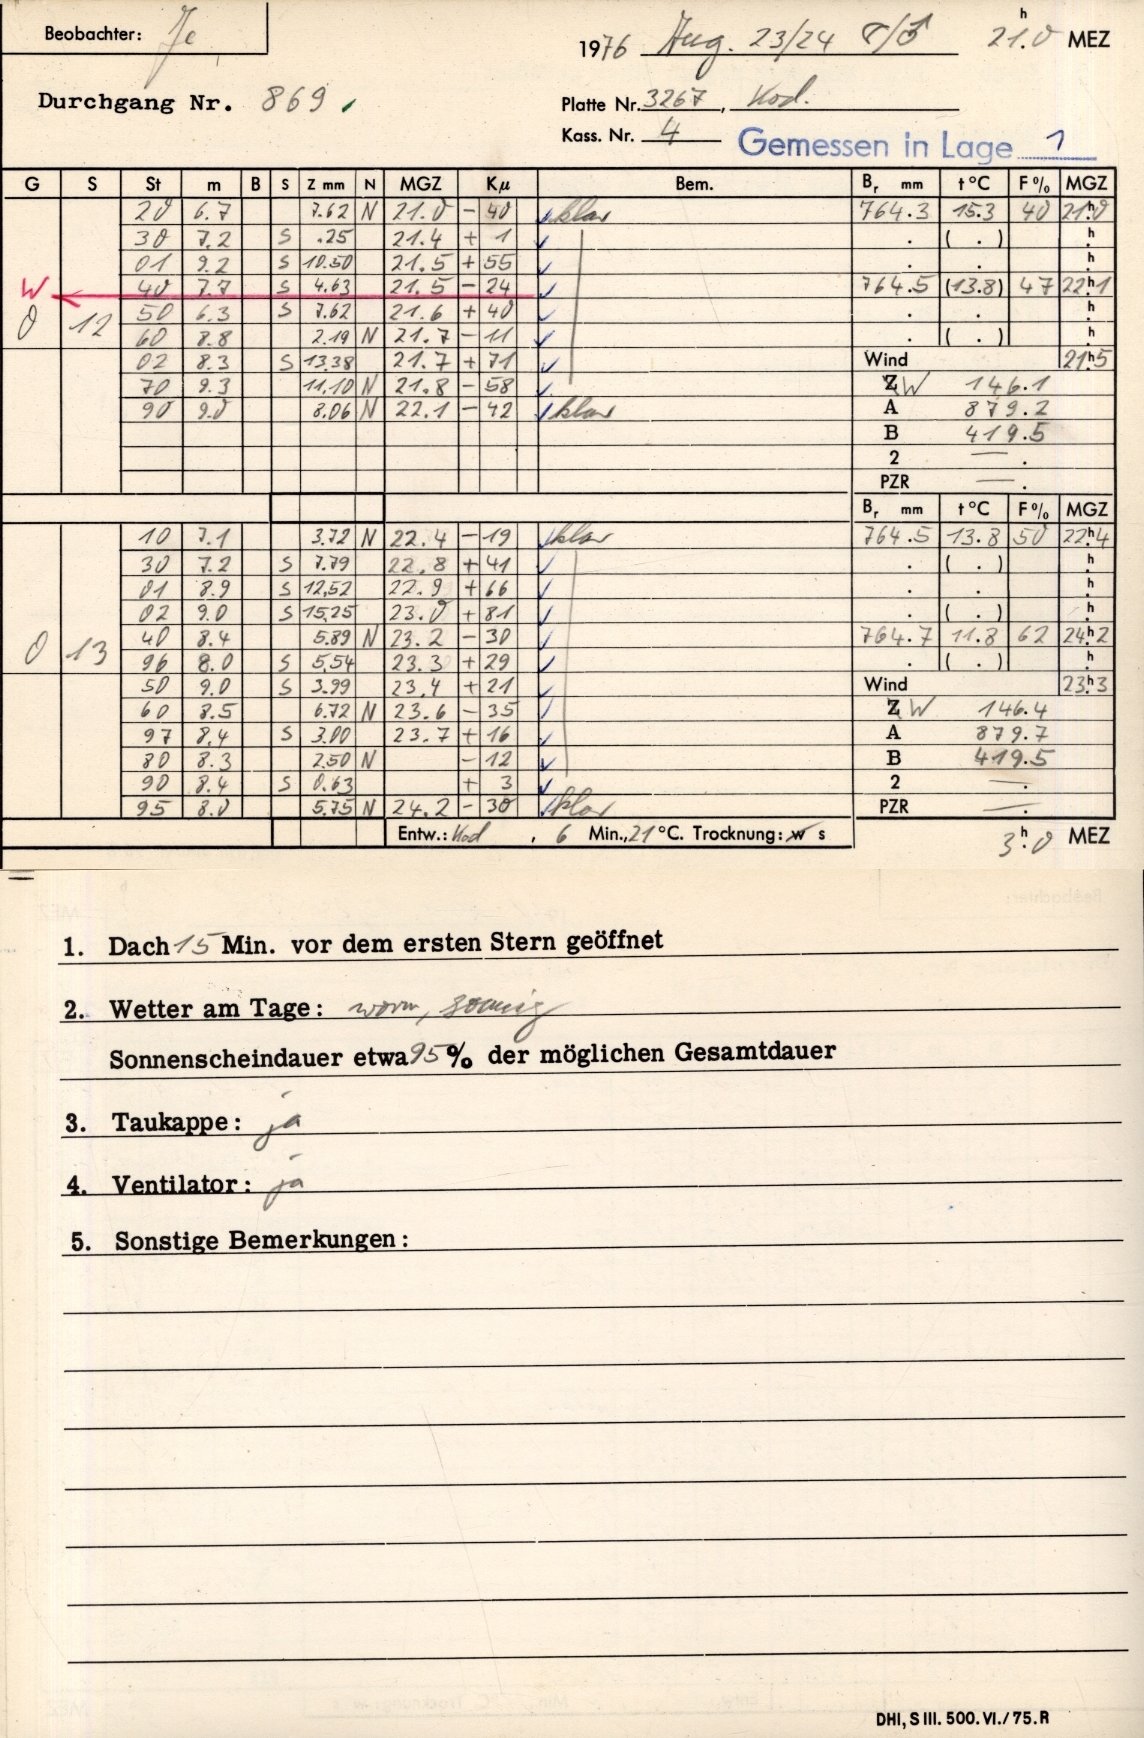 Beobachter: Je
1976 Aug. 23/24 21h.0 MEZ
Durchgang Nr. 869.
Platte Nr. 3267, Kod.
Kass. Nr. 4 Gemessen in Lage 1
G S St m B S Z mm N MGZ Kµ Bem. Br mm t °C F % MGZ
20 6.7 7.62 N 21.0 - 40 klar 764.3 15.3 40 21h.0
30 7.2 S .25 21.4 + 1 . ( . ) h.
01 9.2 S 10.50 21.5 + 55 . . h.
W 40 7.7 S 4.63 21.5 - 24 764.5 (13.8) 47 22h.1
0 12 50 6.3 S 7.62 21.6 + 40 . . h.
60 8.8 2.19 N 21.7 - 11 . ( . ) h.
02 8.3 S 13.38 21.7 + 71 Wind 21h.5
70 9.3 11.10 N 21.8 - 58 Z W 146.1
90 9.0 8.06 N 22.1 - 42 klar A 879.2
B 419.5
2 — .
PZR — .
Br mm t °C F % MGZ
10 7.1 3.72 N 22.4 - 19 klar 764.5 13.8 50 22h.4
30 7.2 S 7.79 22.8 + 41 . ( . ) h.
01 8.9 S 12,52 22.9 + 66 . . h.
02 9.0 S 15,25 23.0 + 81 . ( . ) h.
0 13 40 8.4 5.89 N 23.2 - 30 764.7 11.8 62 24h.2
96 8.0 S 5,54 23.3 + 29 . ( . ) h.
50 9.0 S 3.99 23.4 + 21 Wind 23h.3
60 8.5 6.72 N 23.6 - 35 Z W 146.4
97 8.4 S 3.00 23.7 + 16 A 879.7
80 8.3 2.50 N - 12 B 419.5
90 8.4 S 0.63 + 3 2 — .
95 8.0 5.75 N 24.2 - 30 klar PZR — .
Entw.: Kod , 6 Min., 21 °C. Trocknung: w s
3h.0 MEZ
1. Dach 15 Min. vor dem ersten Stern geöffnet
2. Wetter am Tage: warm, sonnig
Sonnenscheindauer etwa 95 % der möglichen Gesamtdauer
3. Taukappe: ja
4. Ventilator: ja
5. Sonstige Bemerkungen:
DHI, S III. 500. VI. / 75. R